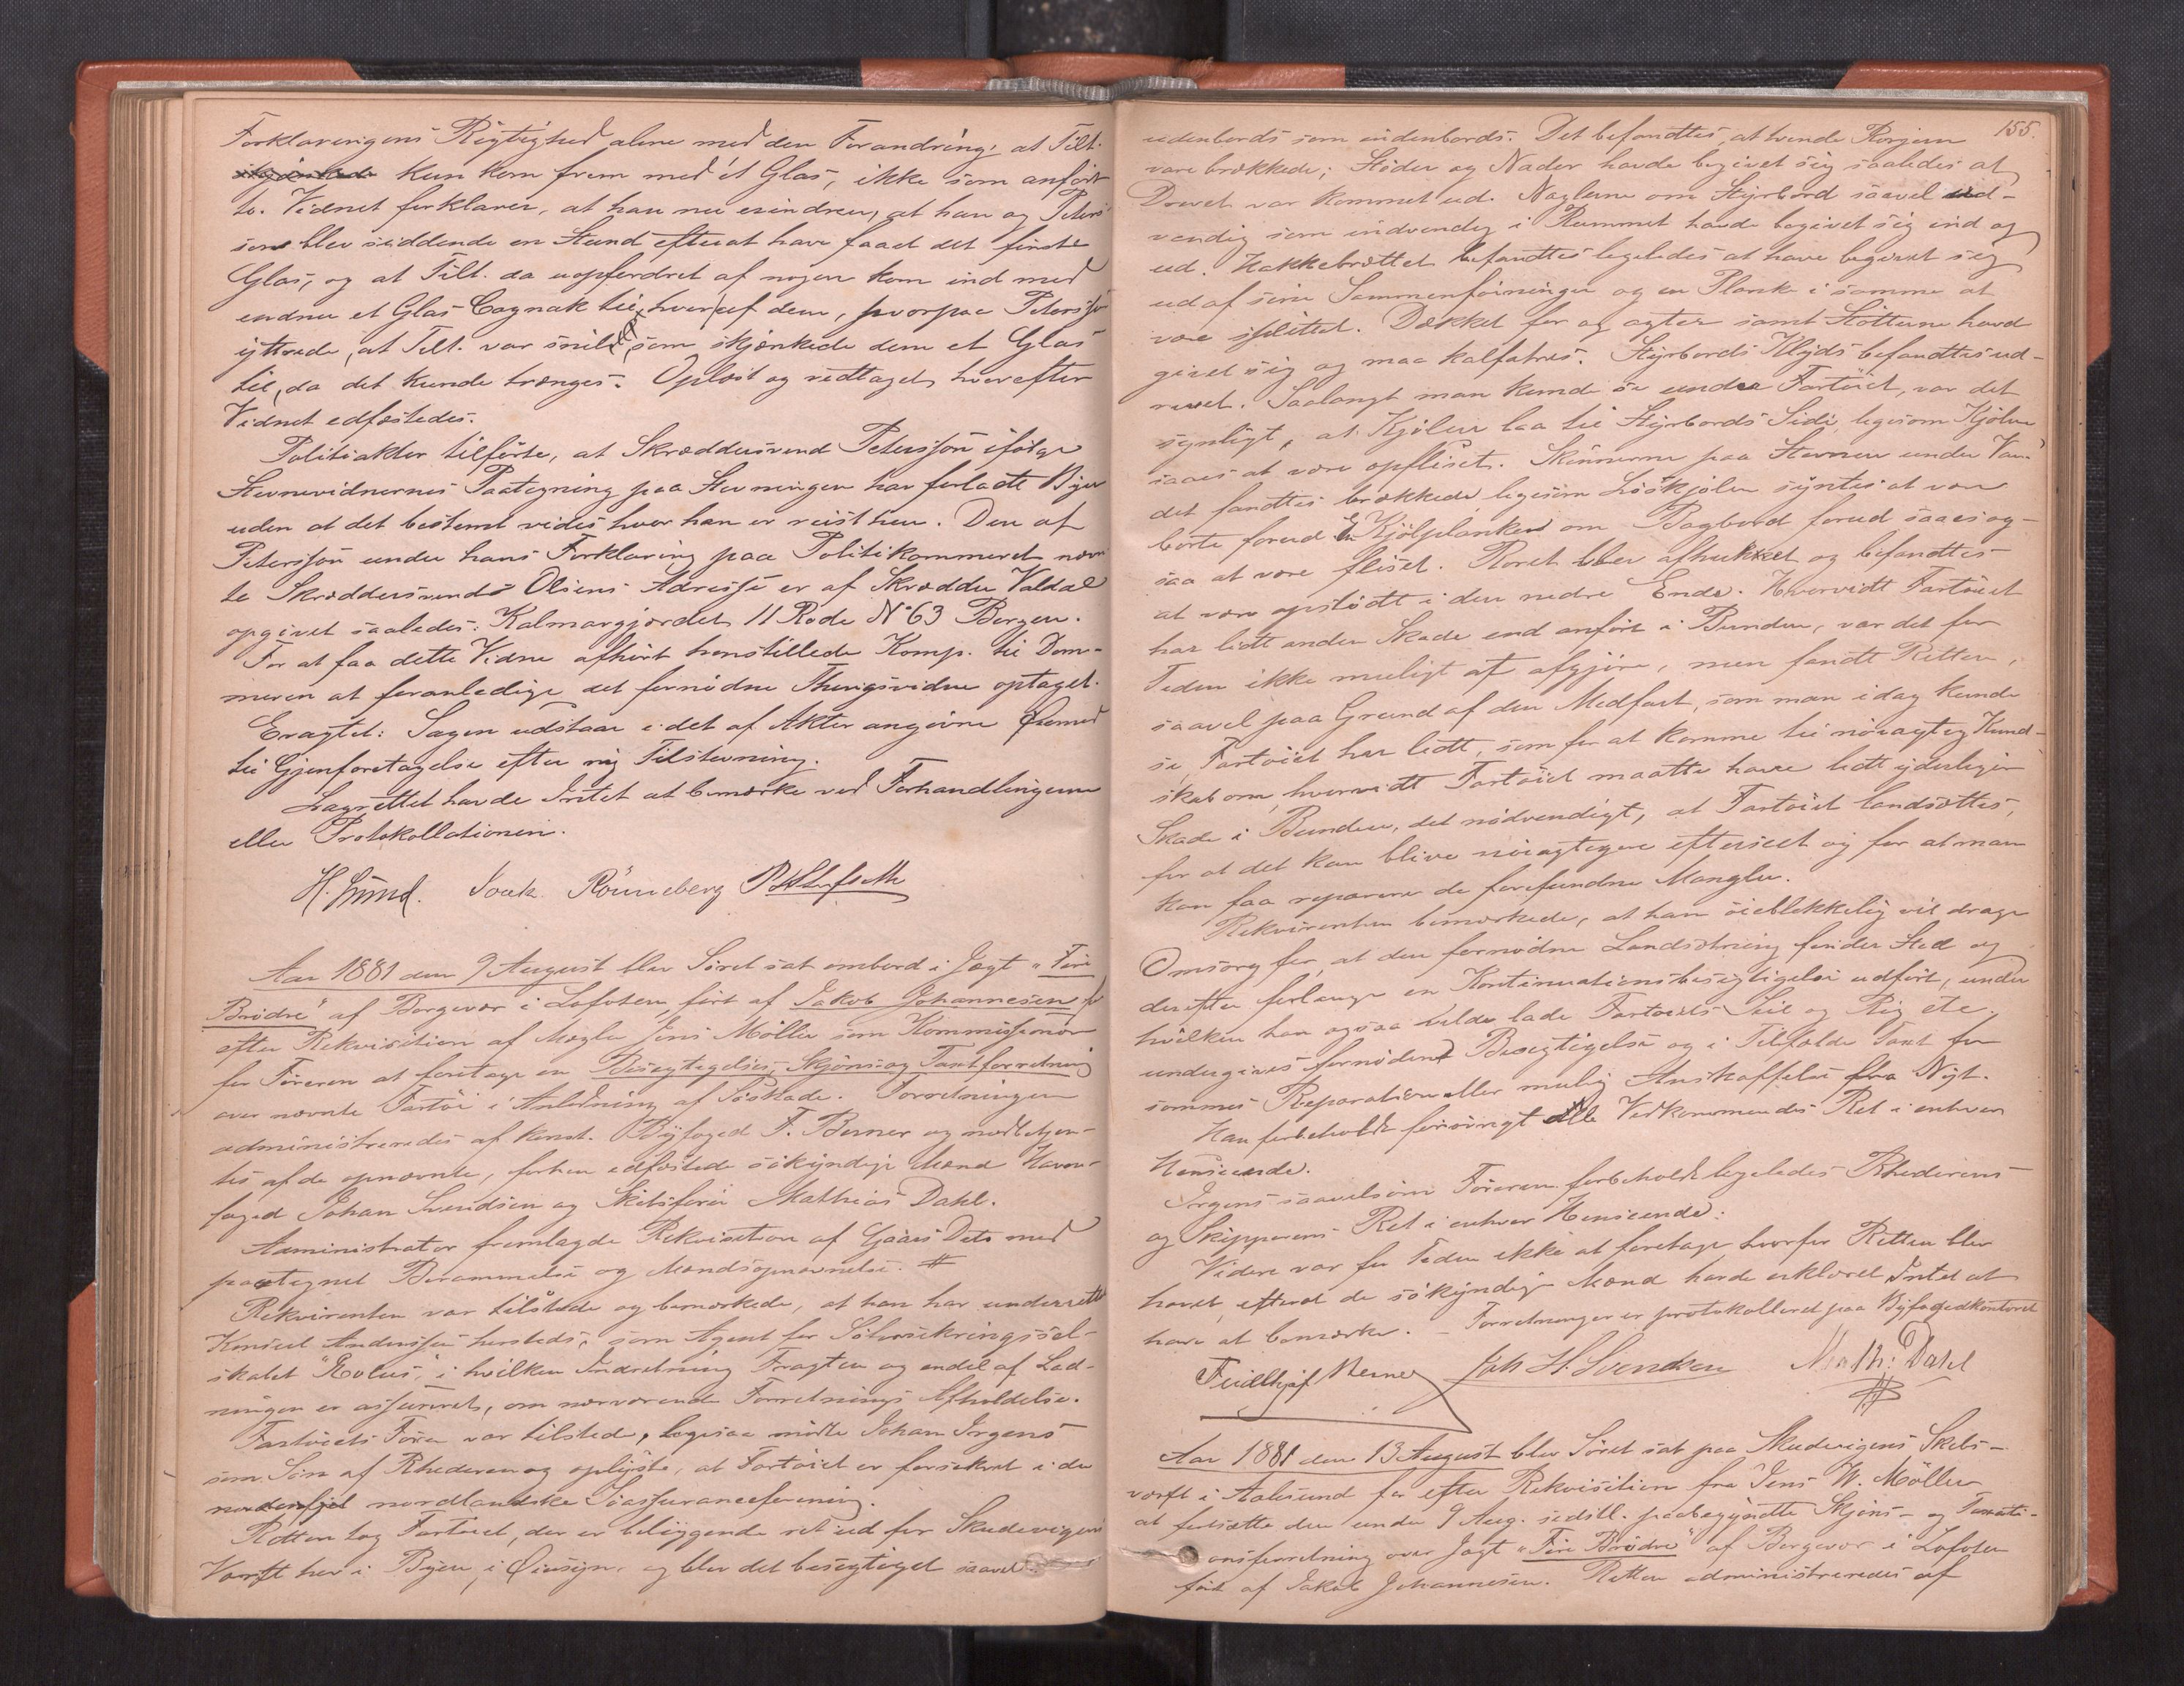 Forklaringens Rigtighed alene med den Forandring, at Tilt.
kun kom frem med ét Glas, ikke som anført
to. Vidnet forklarer, at han nu erindrer, at han og Peters-
son blev siddende en Stund efterat have faaet det første
Glas, og at Tilt. da uopfordret af nogen kom ind med
endnu et Glas Cognak til hver af dem, hvorpaa Petersson
yttrede, at Tilt. var snild, som skjænkede dem et Glas
til, da det kunde trænges. Oplæst og vedtaget, hvorefter
Vidnet edfæstedes.
Politiaktor tilførte, at Skræddersvend Petersson ifølge
Stevnevidnernes Paategning paa Stevningen har forladt Byen
uden at det bestemt vides hvor han er reist hen. Den af
Petersson under hans Forklaring paa Politikammeret nævn
te Skræddersvends Olsens Adresse er af Skrædder Valdal
opgivet saaledes: Kalmargjærdet, 11 Rode No 63 Bergen.
For at faa dette Vidne afhørt henstillede Komp. til Dom-
meren at foranledige det fornødne Thingsvidne optaget.
Eragtet: Sagen udstaar i det af Aktor angivne Øiemed
til Gjenforetagelse efter ny Tilstevning.
Lagrettet havde Intet at bemærke ved Forhandlingerne
eller Protokollationen.
H. Sund. Isak Rönneberg
Aar 1881 den 9 August blev Søret sat ombord i Jagt "Fire
Brødre" af Borgevær i Lofoten, ført af Jakob Johannesen for
efter Rekvisition af Mægler Jens Møller som Kommissionær
for Føreren at foretage en Besigtigelses, Skjøns og Taxtforretning
over nævnte Fartøi i Anledning af Søskade. Forretningen
administreredes af konst. Byfoged F. Berner og medbetjen-
tes af de opnævnte, forhen edfæstede søkyndige Mænd Havne-
foged Johan Svendsen og Skibsfører Mathias Dahl.
Administrator fremlagde Rekvisition af Gaars Dato med
paategnet Berammelse og Mandsopnævnelse. #
Rekvirenten var tilstede og bemærkede, at han har underrettet
Konsul Anderssen hersteds, som Agent for Søforsikringssel-
skabet "Æolus", i hvilken Indretning Fragten og endel af Lad-
ningen er assureret, om nærværende Forretnings Afholdelse.
Fartøiets Fører var tilstede, ligesaa mødte Johan Irgens
som Søn af Rhederen og oplyste, at Fartøiet er forsikret i den
nordenfjel nordlandske Søassuranceforening.
Retten tog Fartøiet, der er beliggende ret ud for Skudevigens
Værft her i Byen, i Øiesyn, og blev det besigtiget saavel
155.
udenbords som indenbords. Det befandtes, at tvende Rorjern
vare brækkede; Støder og Nader havde begivet sig saaledes at
Drevet var kommet ud. Naglerne om Styrbord saavel ud-
vendig som indvendig i Rummet havde begivet sig ind og
ud. Hakkebrættet befandtes ligeledes at have begivet sig
ud af sine Sammenføininger og en Planke i samme at
være splittet. Dækket for og agter samt Støtterne havd
givet sig og maa kalfatres. Styrbords Klyds befandtes ud-
revet. Saalangt man kunde se under Fartøiet, var det
synligt, at Kjølen laa til Styrbords Side, ligesom Kjølen
saaes at være opfliset. Skinnerne paa Stevnen under Van-
det fandtes brækkede, ligesom Løskjølen syntes at være
borte forud. En Kjølplanken om Bagbord forud saaes og-
saa at være fliset. Roret blev afhukket og befandtes
at være opstødt i den nedre Ende. Hvorvidt Fartøiet
har lidt anden Skade end anført i Bunden, var det for
Tiden ikke muligt at afgjøre, men fandt Retten,
saavel paa Grund af den Medfart, som man idag kunde
se, Fartøiet har lidt, som for at komme til nøiagtig Kund-
skab om, hvorvidt Fartøiet maatte have lidt yderligere
Skade i Bunden, det nødvendigt, at Fartøiet landsættes,
for at det kan blive nøiagtigere efterseet og for at man
kan faa reparere de forefundne Mangler.
Rekvirenten bemærkede, at han øieblikkelig vil drage
Omsorg for, at den fornødne Landsætning finder Sted og
derefter forlange en Kontinuationsbesigtigelse udført, under
hvilken han ogsaa vilde lade Fartøiets Seil og Rig etc.
undergives fornøden Besigtigelse og i Tilfælde Taxt for
sammes Reparation eller mulig Anskaffelse fra Nyt.
Han forbeholdt forøvrigt alle Vedkommendes Ret i enhver
Henseende.
Irgens saavelsom Føreren forbeholdt ligeledes Rhederens
og Skipperens Ret i enhver Henseende.
Videre var for Tiden ikke at foretage, hvorfor Retten blev
hævet, efterat de søkyndige Mænd havde erklæret Intet at
have at bemærke. – Forretningen er protokolleret paa Byfogedkontoret
Fridthjof Berner Joh H. Svendsen Math: Dahl
#
Aar 1881 den 13 August blev Søret sat paa Skudevigens Skibs-
værft i Aalesund for efter Rekvisition fra Jens W. Møller
at fortsætte den under 9 Aug. sidstl. paabegyndte Skjøns- og Taxati-
onsforretning over Jagt "Fire Brødre" af Borgevær i Lofoten
ført af Jakob Johannesen. Retten administreredes af